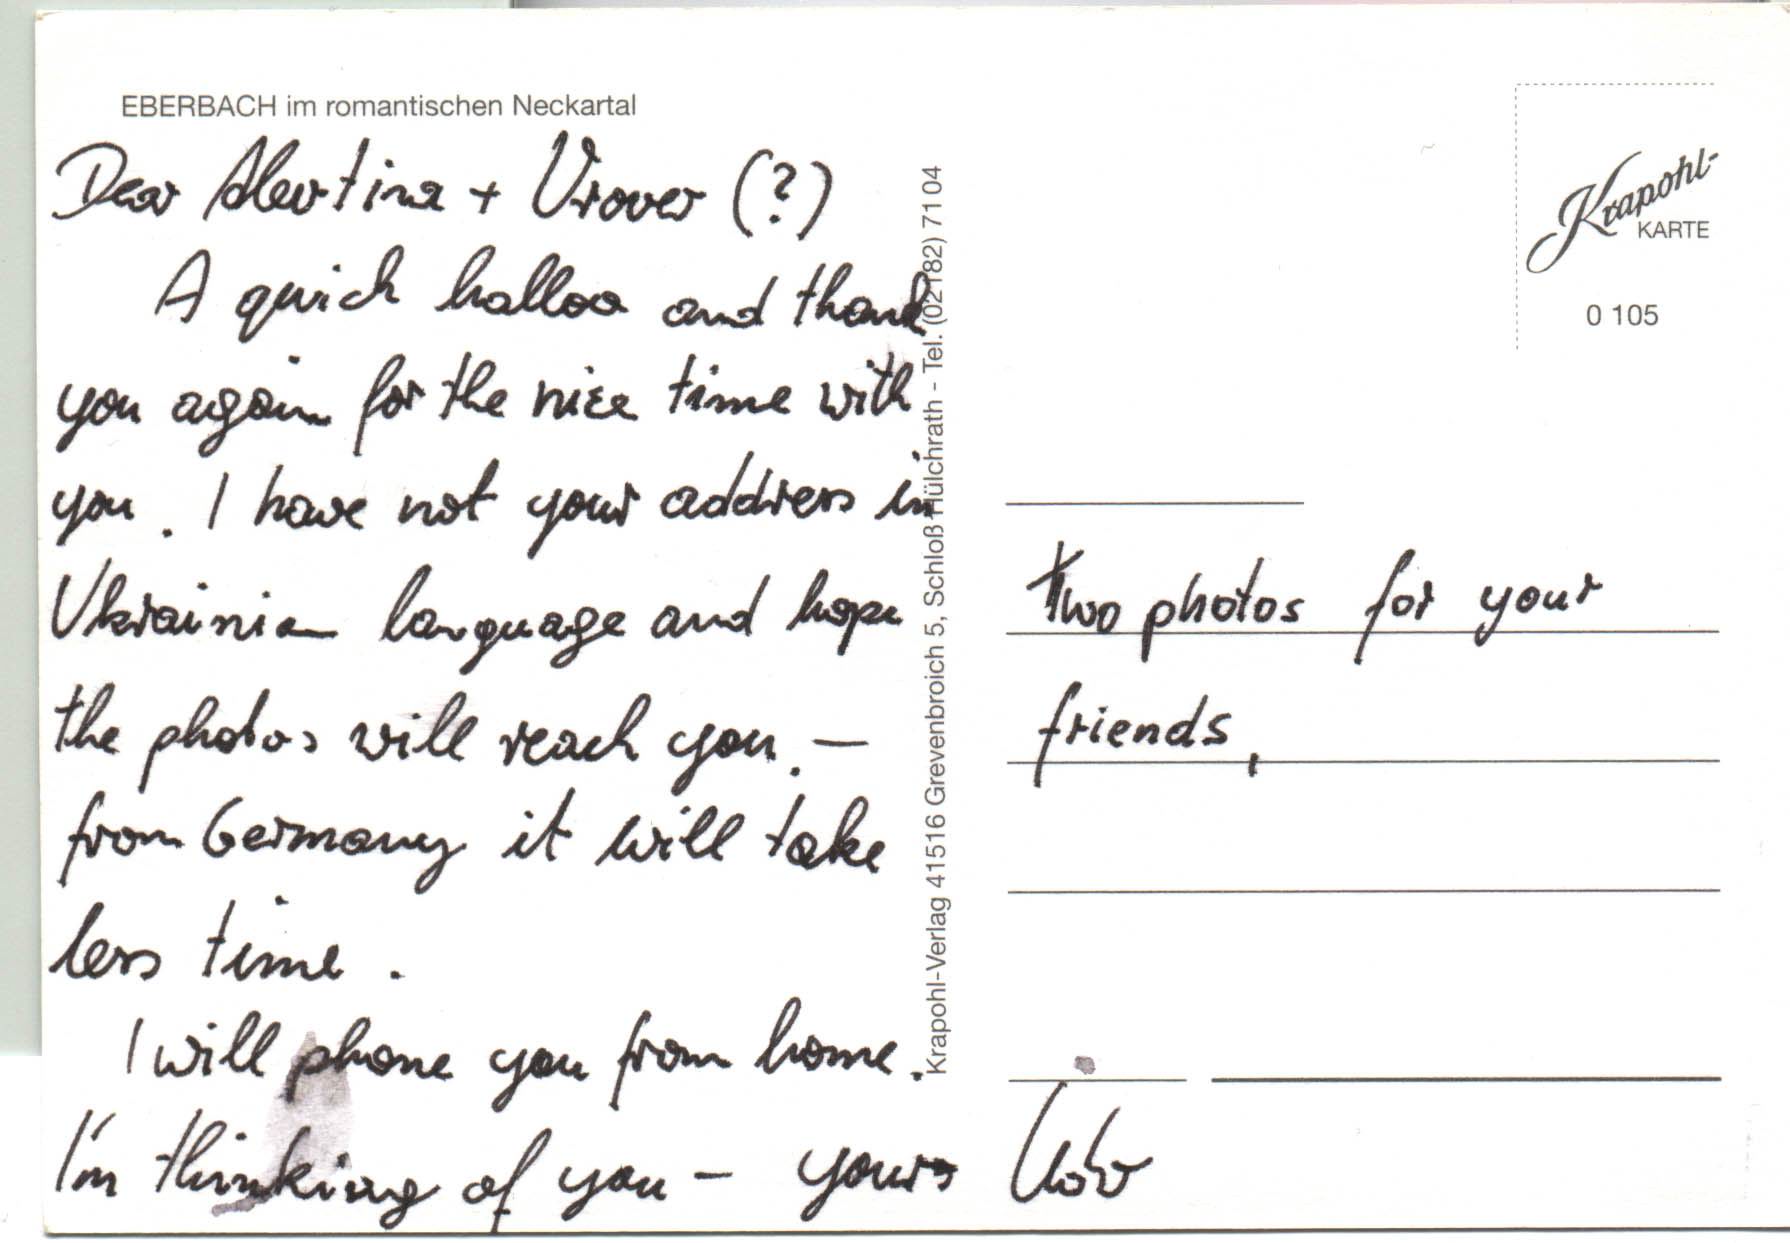 EBERBACH im romantischen Neckartal
Dear + (?)
A quick halloo and thank
you again for the nice time with
you. I have not your address in
Ukrainian language and hope
the photos will reach you. —
from Germany it will take
less time.
I will phone you from home.
I'm thinking of you – yours
Krapohl-Verlag 41516 Grevenbroich 5, Schloß Hülchrath - Tel. (02182) 7104
Krapohl-
KARTE
0 105
two photos for your
friends,